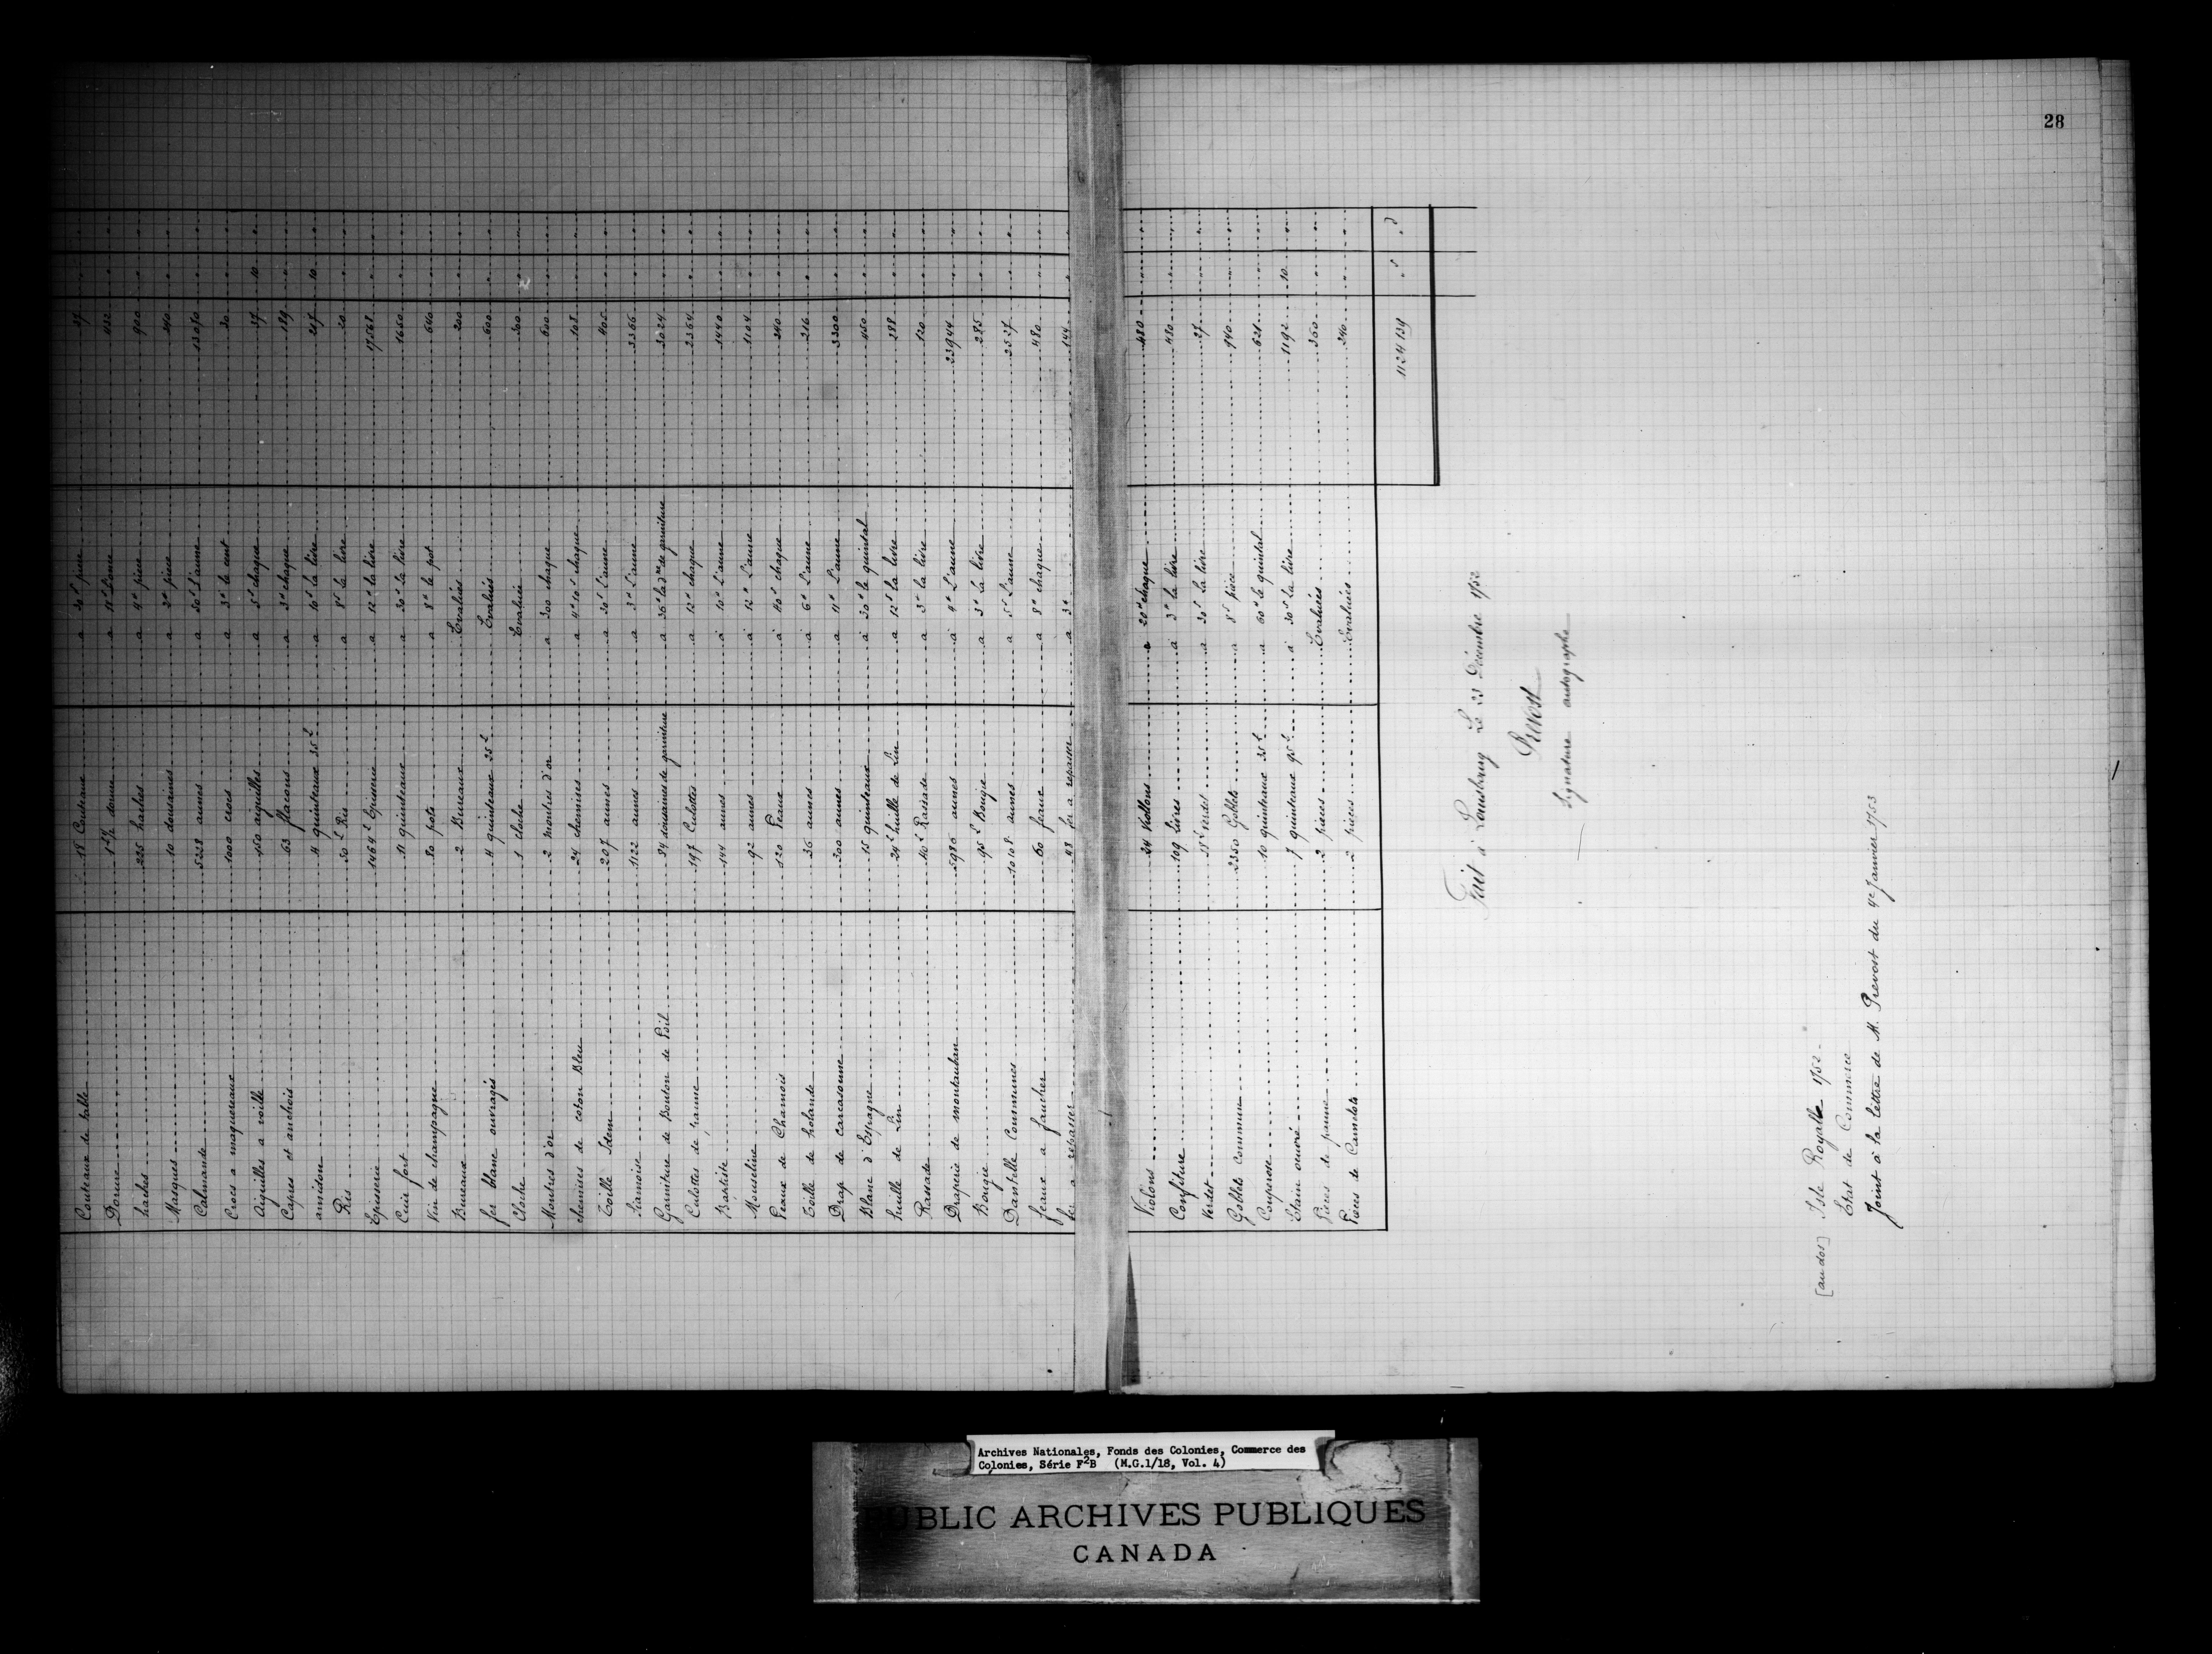 28
Couteaux de table 18 Couteaux a 30s piece 27 " "
Dorure a 18# L'once 432 " "
haches 225 haches a 4# piece 900 " "
Masques 10 douzaines a 2# piece 240 " "
Calmande 5228 aunes a 50s L'aune 13070 " "
Crocs a maquereaux 1000 crocs a 3# le cent 30 " "
Aiguilles a voille 150 aiguilles a 5s chaque 37 10 "
Capres et anchois 63 flacons a 3# chaque 189 " "
amidon 4 quinteaux 35L a 10s La livre 217 10 "
Ris 50L Ris a 8s La livre 20 " "
Episserie 1464L Episserie a 12# la livre 17568 " "
Cuir fort 11 quinteaux a 30s La livre 1650 "
Vin de champagne 80 pots a 8# le pot 640
Bureaux 2 Bureaux Evalués 200
fer blanc ouvragés 4 quinteaux 25L Evalués 600 "
Cloche 1 cloche Evaluée 300 "
Montres d'or 2 montres d'or a 300 chaque 600 "
chemises de coton Bleu 24 chemises a 4# 10s chaque 108 "
Toille Idem 207 aunes a 30s L'aune 405 "
Siamoise 1122 aunes a 3# L'aune 3366 "
Garniture de Bouton de Poil 84 douzaines de garniture a 36# la dne de garniture 3024 "
Culottes de panne 197 Culottes a 12# chaque 2364 "
Baptiste 144 aunes à 10# L'aune 1440 "
Mouseline 92 aunes à 12# L'aune 1104 "
Peaux de Chamois 120 Peaux à 40s chaque 240 "
Toille de holande 36 aunes à 6# L'aune 216 "
Drap de carcasonne 300 aunes a 11# L'aune 3300 "
Blanc d'Espagne 15 quinteaux à 30# le quintal 450 "
huille de Lin 24L huille de Lin a 12s la livre 288 "
Rassade 40L Rasade a 3# la livre 120 "
Draperie de montauban 5986 aunes à 4# L'aune 23944 " "
Bougie 95L Bougie a 3# La livre 285 "
Dantelle Communes 10108 aunes a 5s L'aune 2527 "
feaux a faucher 60 feaux a 8# chaque 480 "
fer a repasser 48 fer a repasser a 3# 144 "
Violons 24 Viollons a 20# chaque 480
Confiture 109 Livres à 3# la livre 480
Verdet 18L verdet a 30s La livre 27
Goblets commun 2350 Goblets a 8s piece 940
Couperose 10 quinteaux 35L a 60# le quintal 621
Etain oeuvré 7 quinteaux 95L a 30s La livre 1192 10
Pieces de panne 2 pieces Evaluées 360
Pieces de Camelots 2 pieces Evaluées 240
1124139 " s " d
Fait à Louisbourg Le 23 Décembre 1752
Prevost
Signature autographe
[au dos] Isle Royalle 1752 -
Etat de Commerce
Joint à la lettre de M. Prevost du 4e Janvier 1753
Archives Nationales, Fonds des Colonies, Commerce des
Colonies, Série F2B (M.G.1/18, Vol. 4)
PUBLIC ARCHIVES PUBLIQUES
CANADA